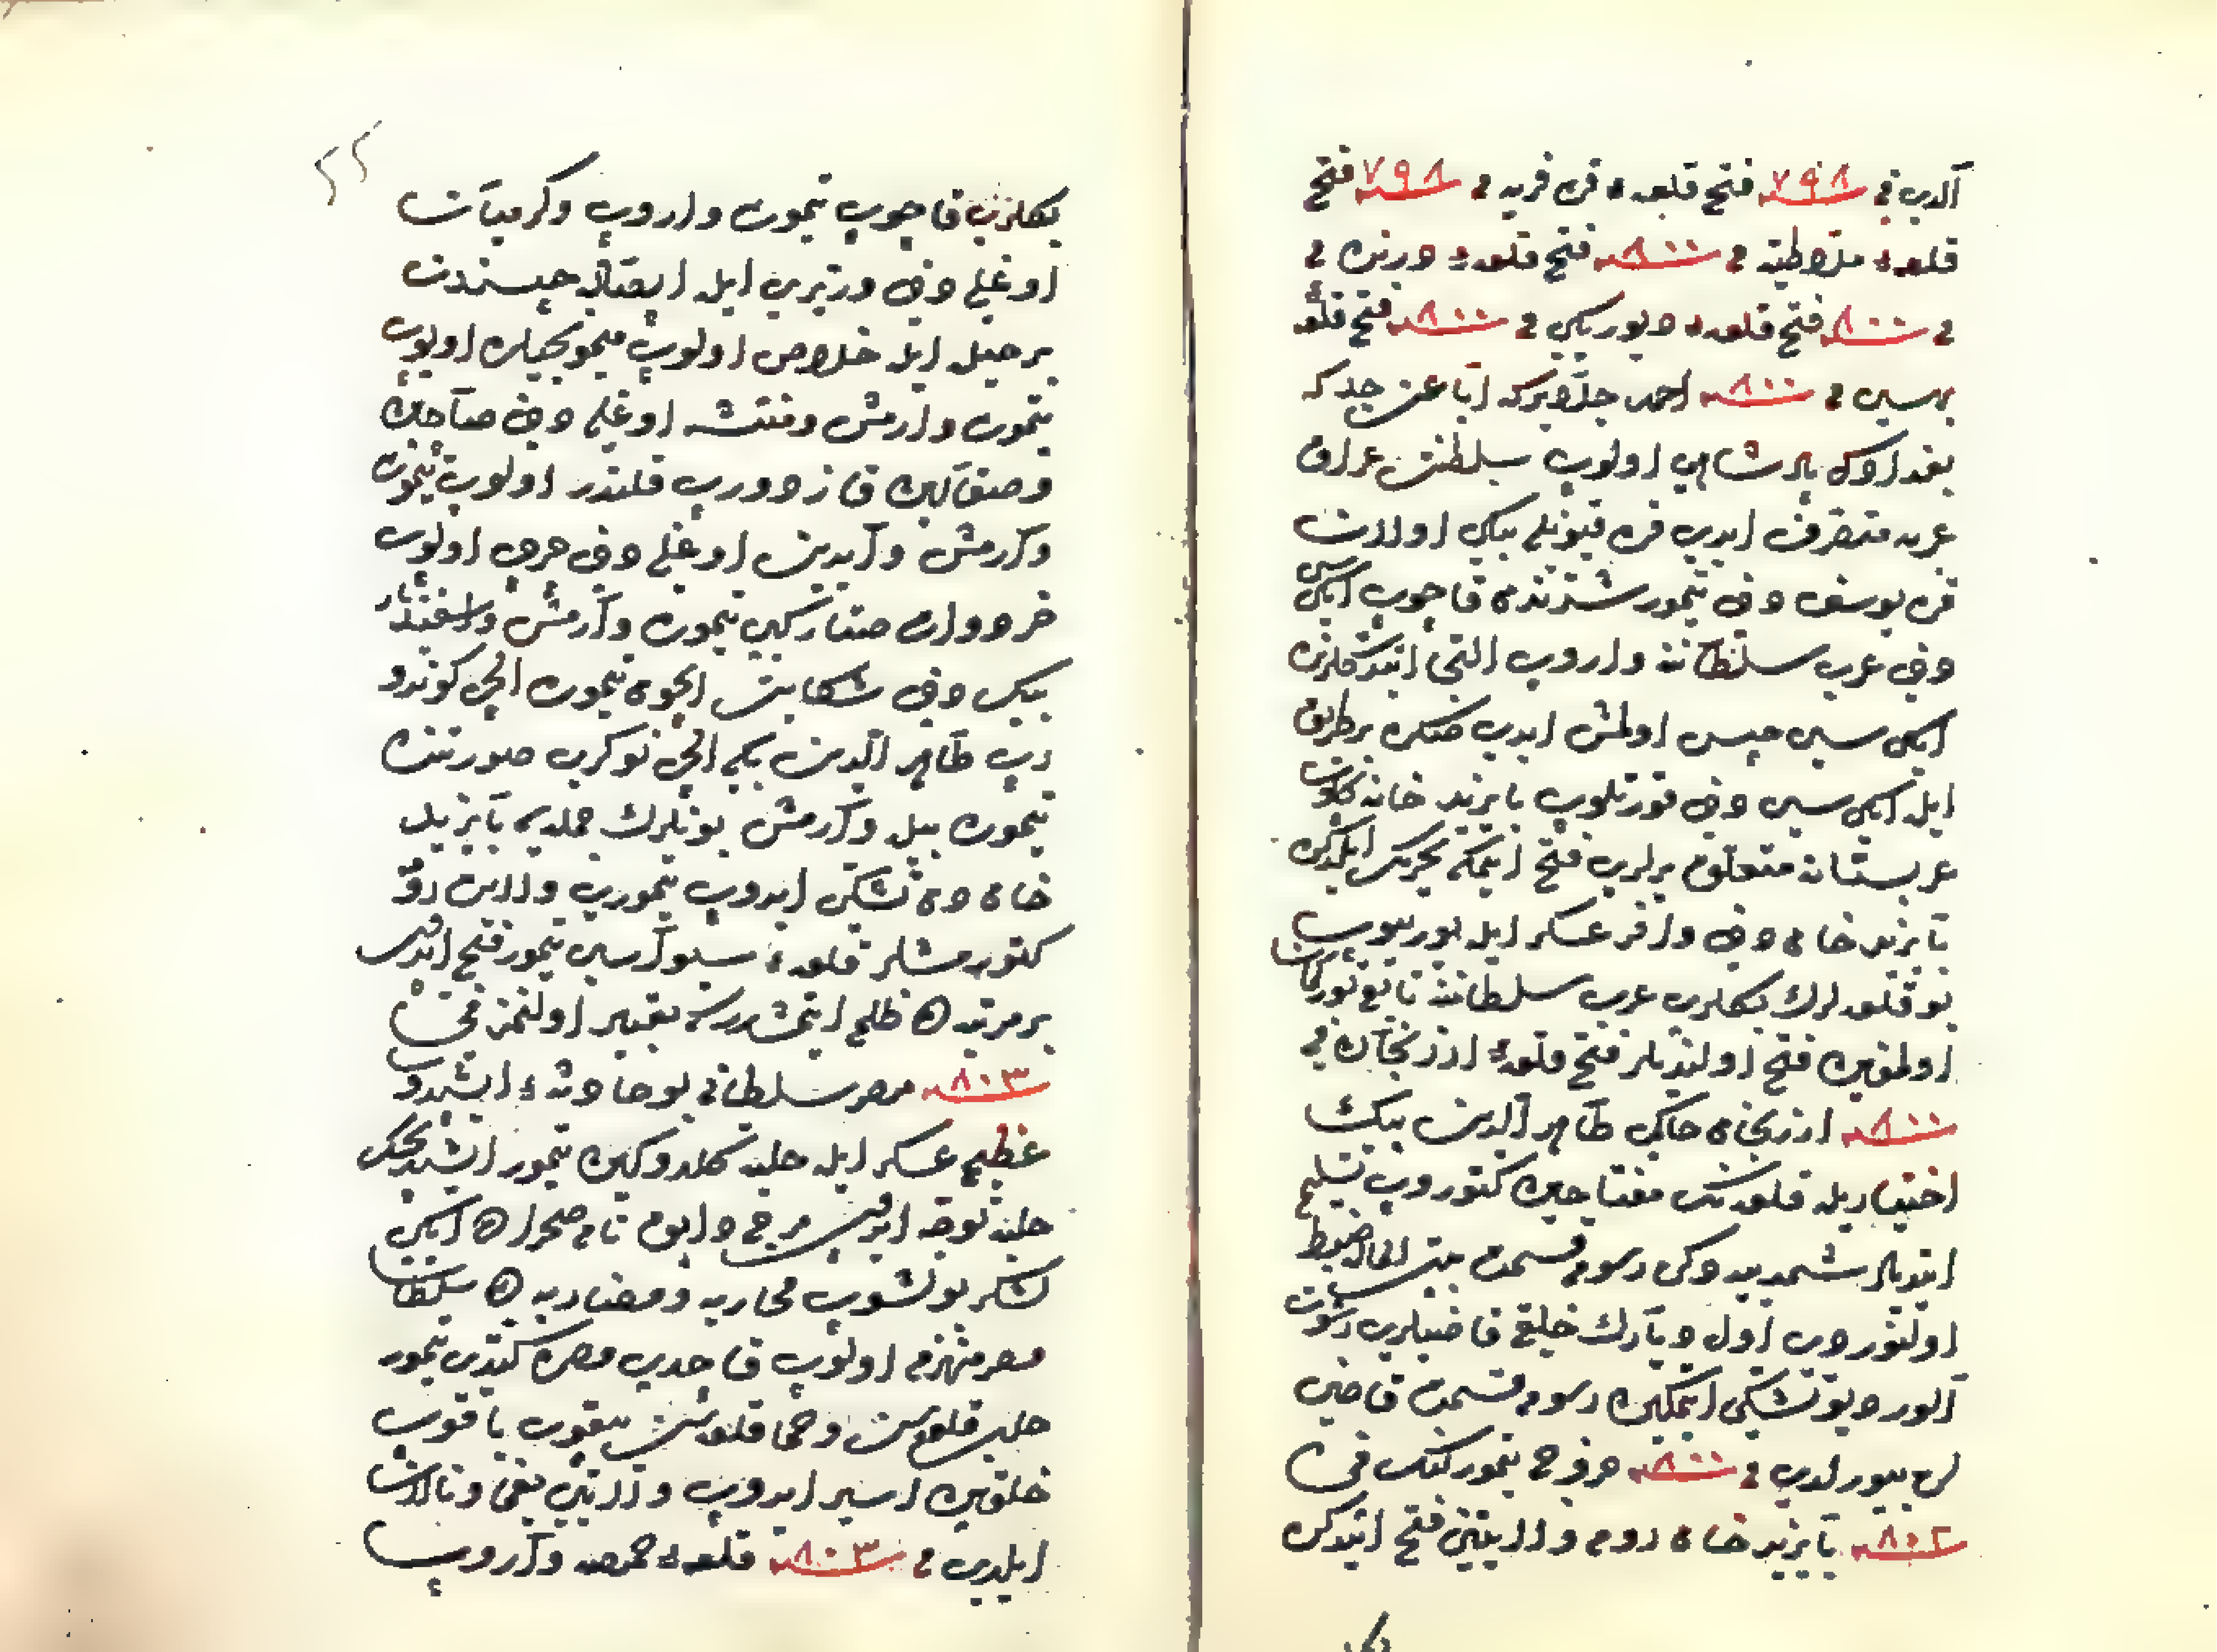 آلدی فی سنه ٧٩٨ فتح قلعهٔ قره فریه فی سنه ٧٩٨ فتح
قلعهٔ ملاطیه فی سنه ٨٠٠ فتح قلعهٔ درنده فی
فی سنه ٨٠٠ فتح قلعهٔ دیوریکی فی سنه ٨٠٠ فتح قلعهٔ
بهسنی فی سنه ٨٠٠ احمد جلایرکه ابا عن جد که
بغدادک پادشاهی اولوب سلطنت عراق
عربه متصرف ایدی قره قیونلی بیکی اولان
قره یوسف دخی تیمور شرندن قاچوب ایکیسی
دخی عرب سلطاننه واروب التجا ایتدکلرنده
ایکیسی حبس اولمش ایدی صکره بر طریق
ایله ایکیسی دخی قورتلوب بایزید خانه کلوب
عربستانه متعلق یرلری فتح ایتمکه تحریک ایلدکده
بایزید خان دخی وافر عسکر ایله یوریوب
بو قلعه لرک بکلری عرب سلطاننه تابع تورکمان
اولمغین فتح اولندیلر فتح قلعهٔ ارزنجان فی
سنه ٨٠٠ ارزنجان حاکمی طاهر الدین بیک
اختیاریله قلعه نک مفتاحین کتوروب تسلیم
ایتدیلر شمدیه دکی رسوم قسمت بیت المال ضبط
اولنور دی اول دیارک خلق قاضیلری رشوت
آلور دیو تشکی ایتمکین رسوم قسمت قاضی
لره بیورلدی فی سنه ٨٠٠ خروج تیمور کنک فی
سنه ٨٠٢ بایزید خان روم ولایتینی فتح ایتدکده
بکلری قاچوب تیموره واروب وکرمیان
اوغلی دخی وزیری ایله ایصاله حبسندن
بر حیله ایله خلاص اولوب میمونجیلره اویوب
تیموره وارمش ومنتشه اوغلی دخی صاچین
وصقالین قازدورب قلندر اولوب تیموره
وارمش وآیدین اوغلی دخی خرجی اولوب
خرده وات صتارکبی تیموره وارمش واسفندیار
بیک دخی شکایت ایچون تیموره ایلچی کوندر
دی طاهر الدین بکی ایلچی نوکری صورتنده
تیموره بیله وارمش بونلرک جمله سی بایزید
خان دن تشکی ایدوب تیموری ولایت روم
کتورمشلر قلعهٔ سیواسی تیمور فتح ایدوب
بر مرتبه ده ظلم ایتمشدرکه تعبیر اولنمز فی
سنه ٨٠٣ مصر سلطانی بو حادثهٔ ایشیدوب
عظیم عسکر ایله حلبه کلدوکین تیمور ایشیدیجک
حلبه توجه ایدوب مرج دابق نام صحراده ایکی
لشکر بولشوب محاربه ومضاربه ده سلطان
مصر منهزم اولوب قاچدی مصره کیتدی تیمور
حلب قلعه سن وحما قلعه سن ییقوب یاقوب
خلقین اسیر ایدوب ولایتی یغی وتالان
ایلدی فی سنه ٨٠٣ قلعهٔ حمصه واروب